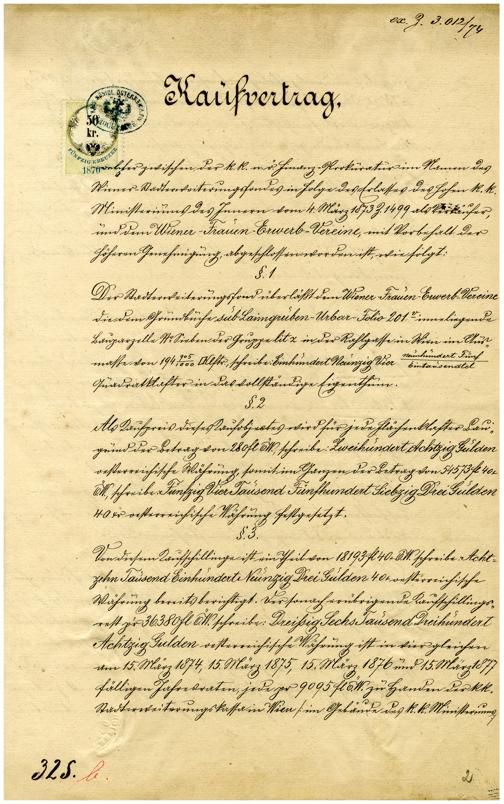 ex. Z. 3.012/74
Kaufvertrag,
50
kr.
FÜNFZIG KREUZER
1870
welcher zwischen der k. k. n. ö. Finanz-Prokuratur im Namen des
Wiener Stadterweiterungsfondes in Folge des Erlasses des hohen k. k.
Ministeriums des Innern vom 4. März 1873 Z. 1499 als Verkäufer,
und dem Wiener-Frauen-Erwerb-Vereine, mit Vorbehalt der
höheren Genehmigung, abgeschlossen worden ist, wie folgt:
§. 1
Der Stadterweiterungsfond überläßt dem Wiener Frauen-Erwerb-Vereine
die dem Grundbuche sub Laimgruben-Urbar-Folio 201 inneliegende
Bauparzelle No Sieben der Gruppe lit z in der Rahlgasse in Wien im Aus-
masse von 194 905/1000 □Klftr, schreibe: Einhundert Neunzig Vier neunhundert Fünf/eintausendtel
Quadratklafter in das vollständige Eigenthum.
§. 2
Als Kaufpreis dieses Kaufobjektes wird für jede Flächenklafter Bau-
grund der Betrag von 280 fl ÖW, schreibe: Zweihundert Achtzig Gulden
oesterreichische Währung, somit im Ganzen der Betrag von 54573 fl 40 kr
ÖW, schreibe: Fünfzig Vier Tausend Fünfhundert Siebzig Drei Gulden
40 kr oesterreichische Währung festgesetzt.
§. 3.
Von diesem Kaufschillinge ist ein Theil von 18193 fl 40 kr ÖW. schreibe: Acht-
zehn Tausend Einhundert Neunzig Drei Gulden 40 kr oesterreichische
Währung bereits berichtigt. Der sonach erübrigende Kaufschillings-
rest pr 36380 fl ÖW. schreibe: Dreißig Sechs Tausend Dreihundert
Achtzig Gulden oesterreichische Währung ist in vier gleichen
am 15. März 1874, 15. März 1875, 15. März 1876 und 15. März 1877
fälligen Jahresraten, jede pr 9095 fl ÖW. zu Handen der k.k.
Stadterweiterungskassa in Wien /: im Gebäude des k. k. Ministeriums
325. b.
2